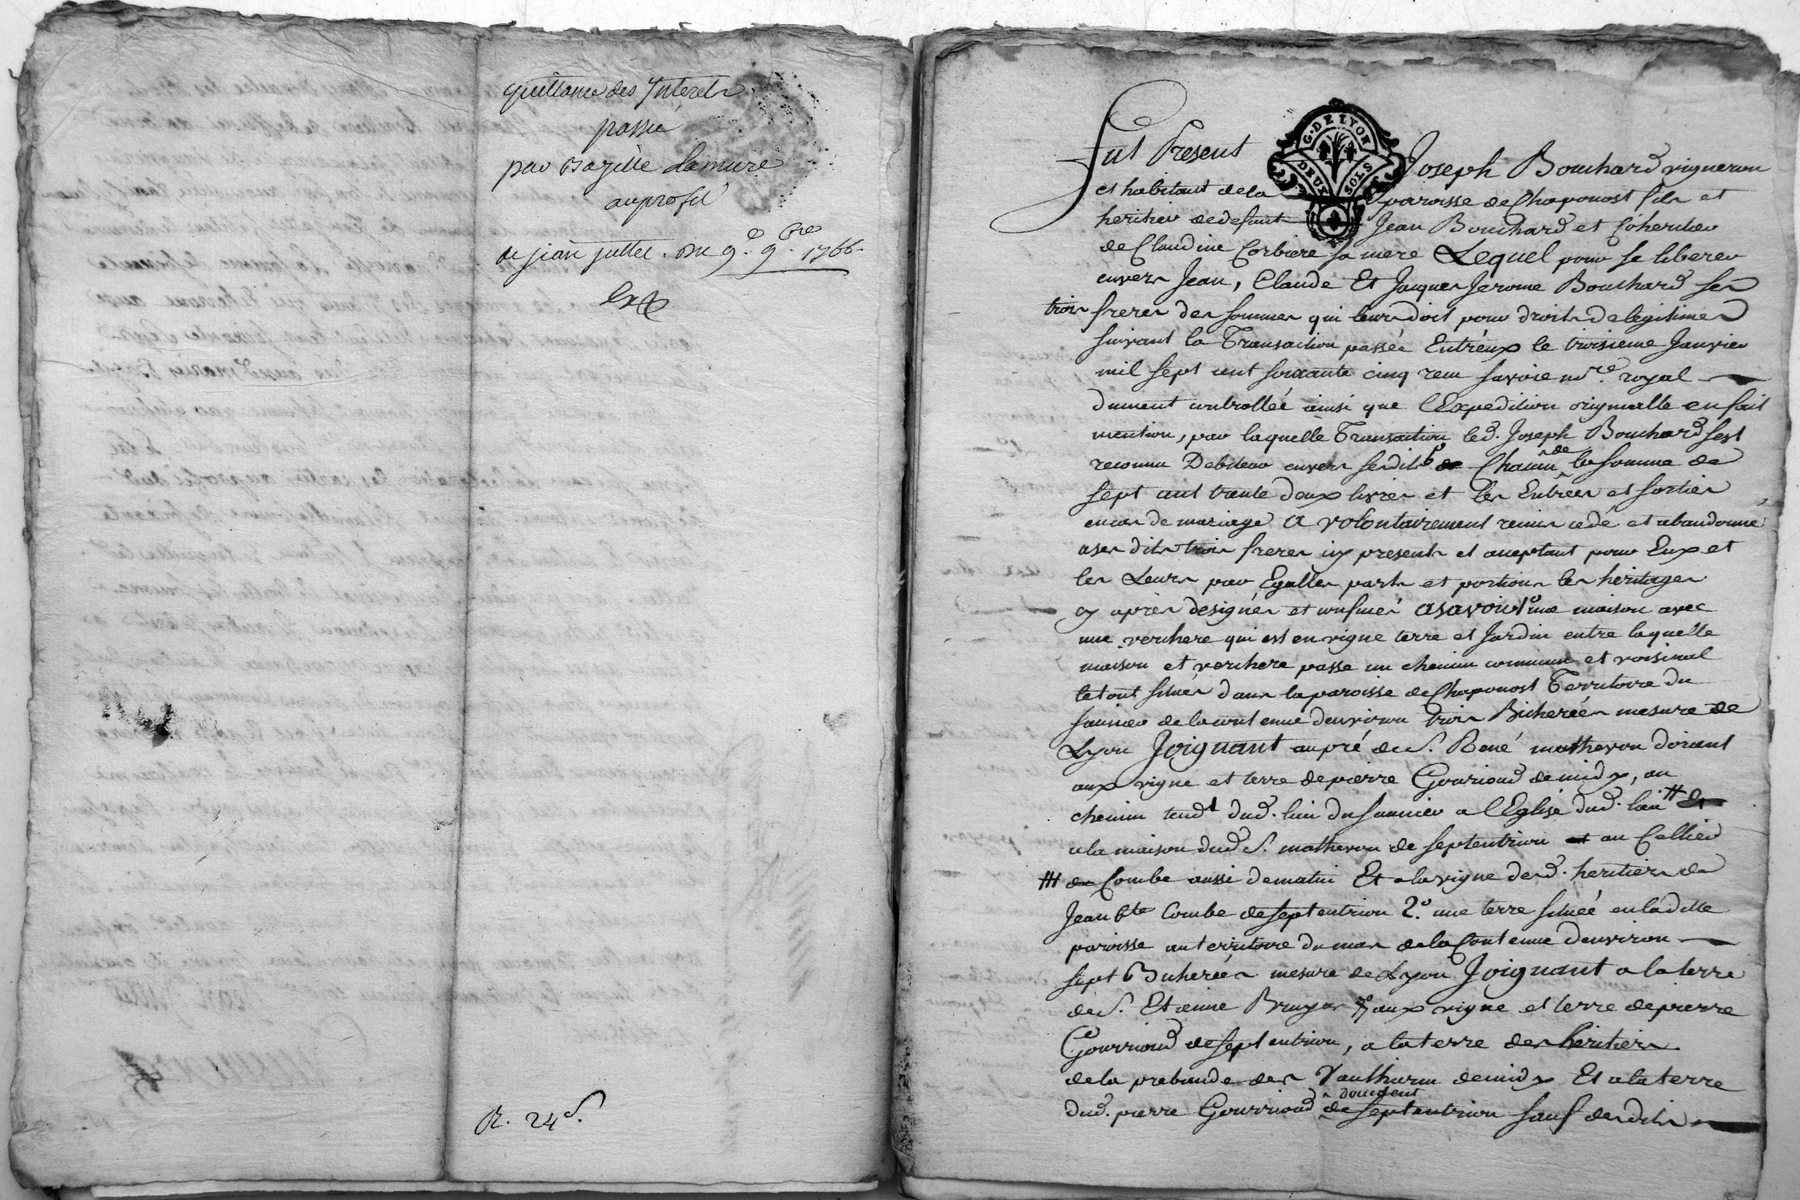 quittance des Interets
passée
par Bazille Lamure
auprofit
de jean jullet. Du 9.e 9.bre 1766
Ex
R. 24 s.
G. DE LYON
DEUX SOLS
Fut Present Joseph Bouchard vigneron
et habitant de la paroisse de Chaponost fils et
heritier de defunt Jean Bouchard et Coheritier
de Claudine Corbiere sa mere Lequel pour se liberer
envers Jean, Claude Et Jacques Jerome Bouchard ses
trois freres des sommes qui leurs doit pour droits de legitimes
suivant la Transaction passée Entréux le troisieme Janvier
mil sept cent soixante cinq receu savoie no.re royal
dument controlleé ainsi que l'Expedition originalle en fait
mention, par laquelle Transaction led. Joseph Bouchard sest
reconnu Debiteur envers sesdits de Chacun de la somme de
sept cent trente deux livres et les Entrées et sorties
en cas de mariage a volontairement remis cedé et abandonné
a ses dits trois freres icy presents et acceptant pour Eux et
les Leurs par Egalles parts et portions les heritages
cy après designés et confinés asavoir 1.o une maison avec
une verchere qui est en vigne terre et Jardin entre laquelle
maison et verchere passe un chemin commun et voisinal
le tout situés dans la paroisse de Chaponost Territoire du
saunier de la contenue d'environ trois Bicherées mesure de
Lyon Joignant au pré de S. René matheron d'orient
aux vigne et terre de pierre Gourioud de midy, au
chemin tend.t dud. lieu du saunier a l'Eglise dud. lieu # Et
a la maison dud. S. matheron de septentrion et au Cellier
# de Combe aussi de matin Et a la vigne desd. heritiers de
Jean B.te Combe de septentrion 2.o une terre située en la ditte
paroisse au territoire du mas de la Contenue d'environ
sept Bicherées mesure de Lyon Joignant a la terre
de S. Etienne Bruyas aux vigne et terre de pierre
Gourrioud de septentrion, a la terre des héritiers
de la prebande des Vautherin de midy Et a la terre
dud. pierre Gourrioud de septentrion sauf desdits